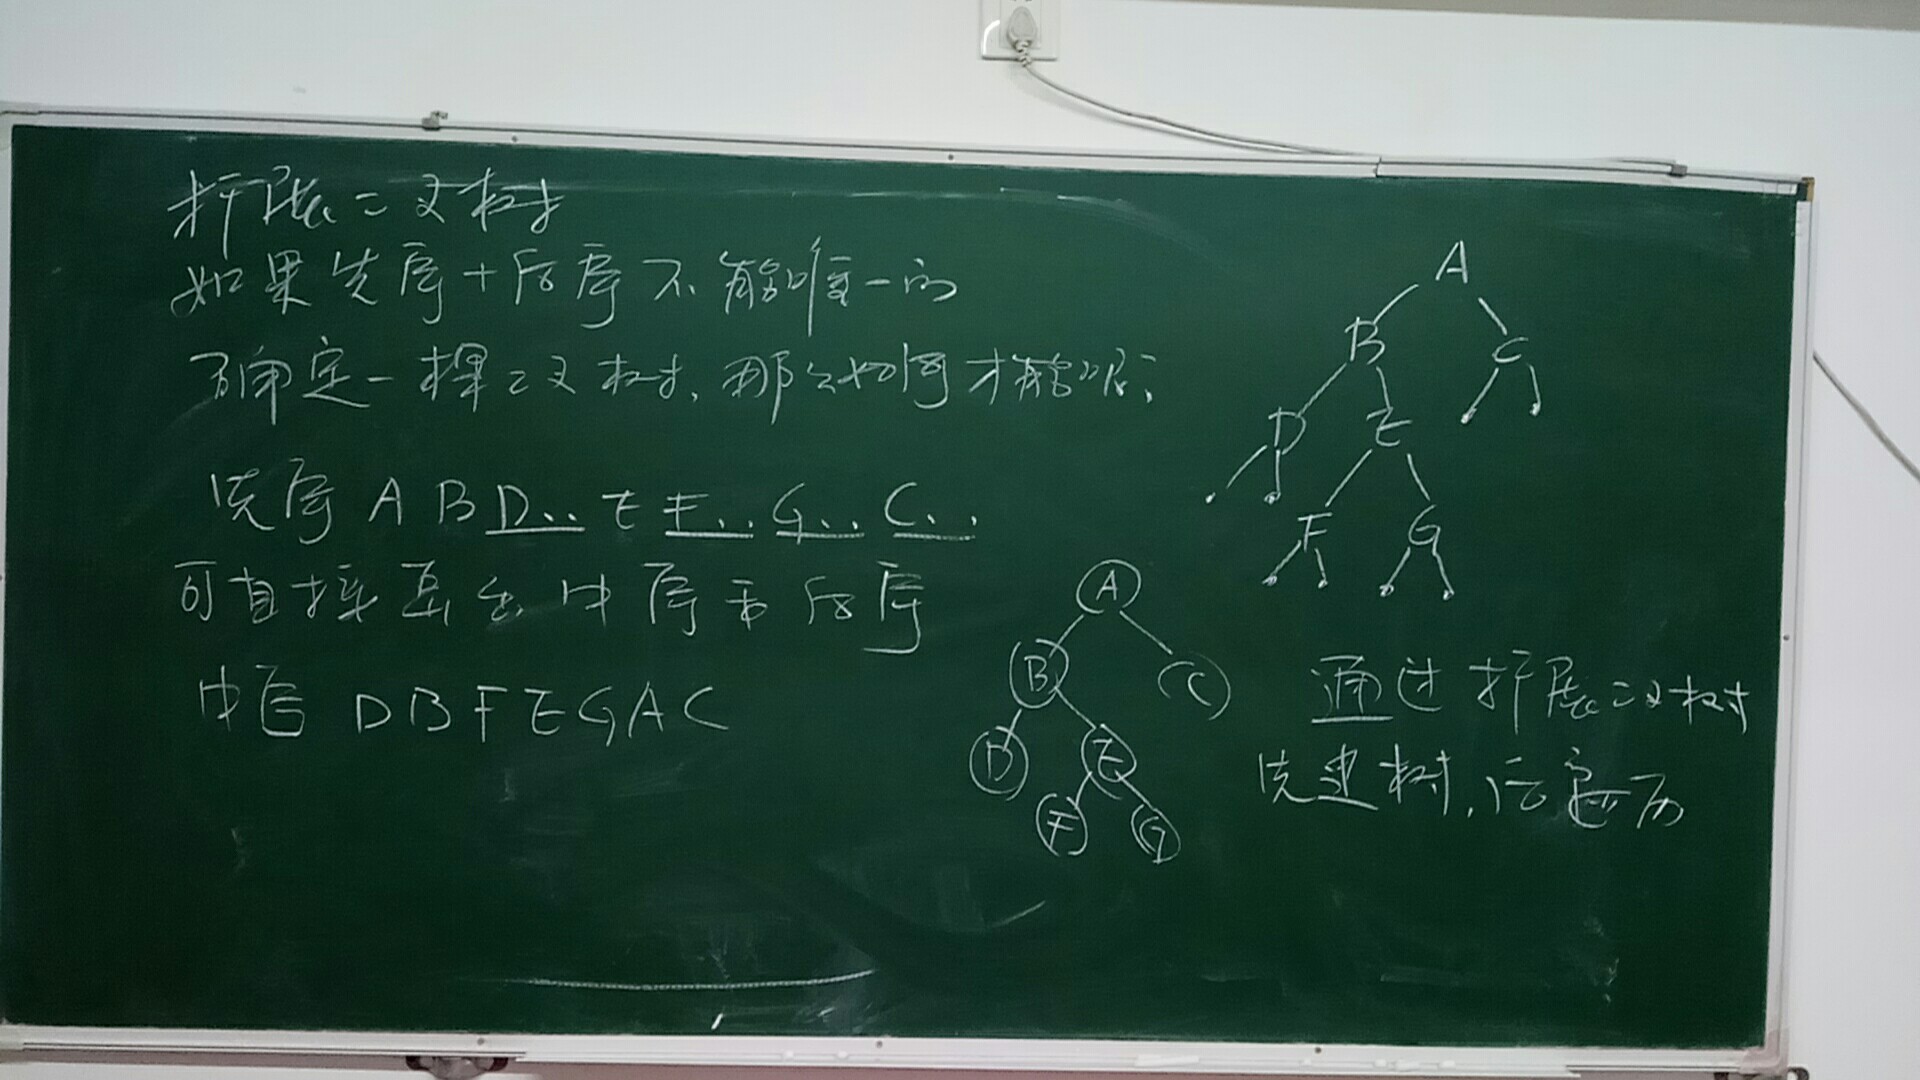 扩展二叉树
如果先序+后序不能唯一的
确定一棵二叉树,那么如何才能呢?
先序 A B D.. E F.. G.. C..
可直接画出中序和后序
中序 D B F E G A C
A
B C
D E
F G
A
B C
D E
F G
通过扩展二叉树
先建树,后遍历